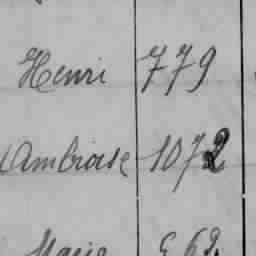 Henri 779
Ambroise 1072
Marie 562